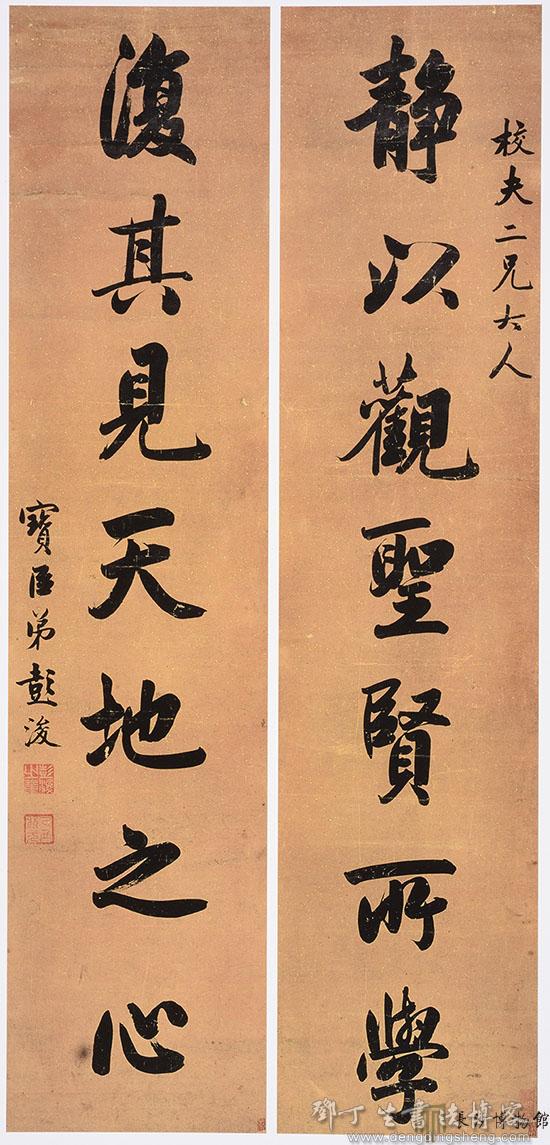 校夫二兄大人
靜以觀聖賢所學
復其見天地之心
寶臣弟彭浚
長沙博物館
鄧丁生書法博客
www.dengdingsheng.com